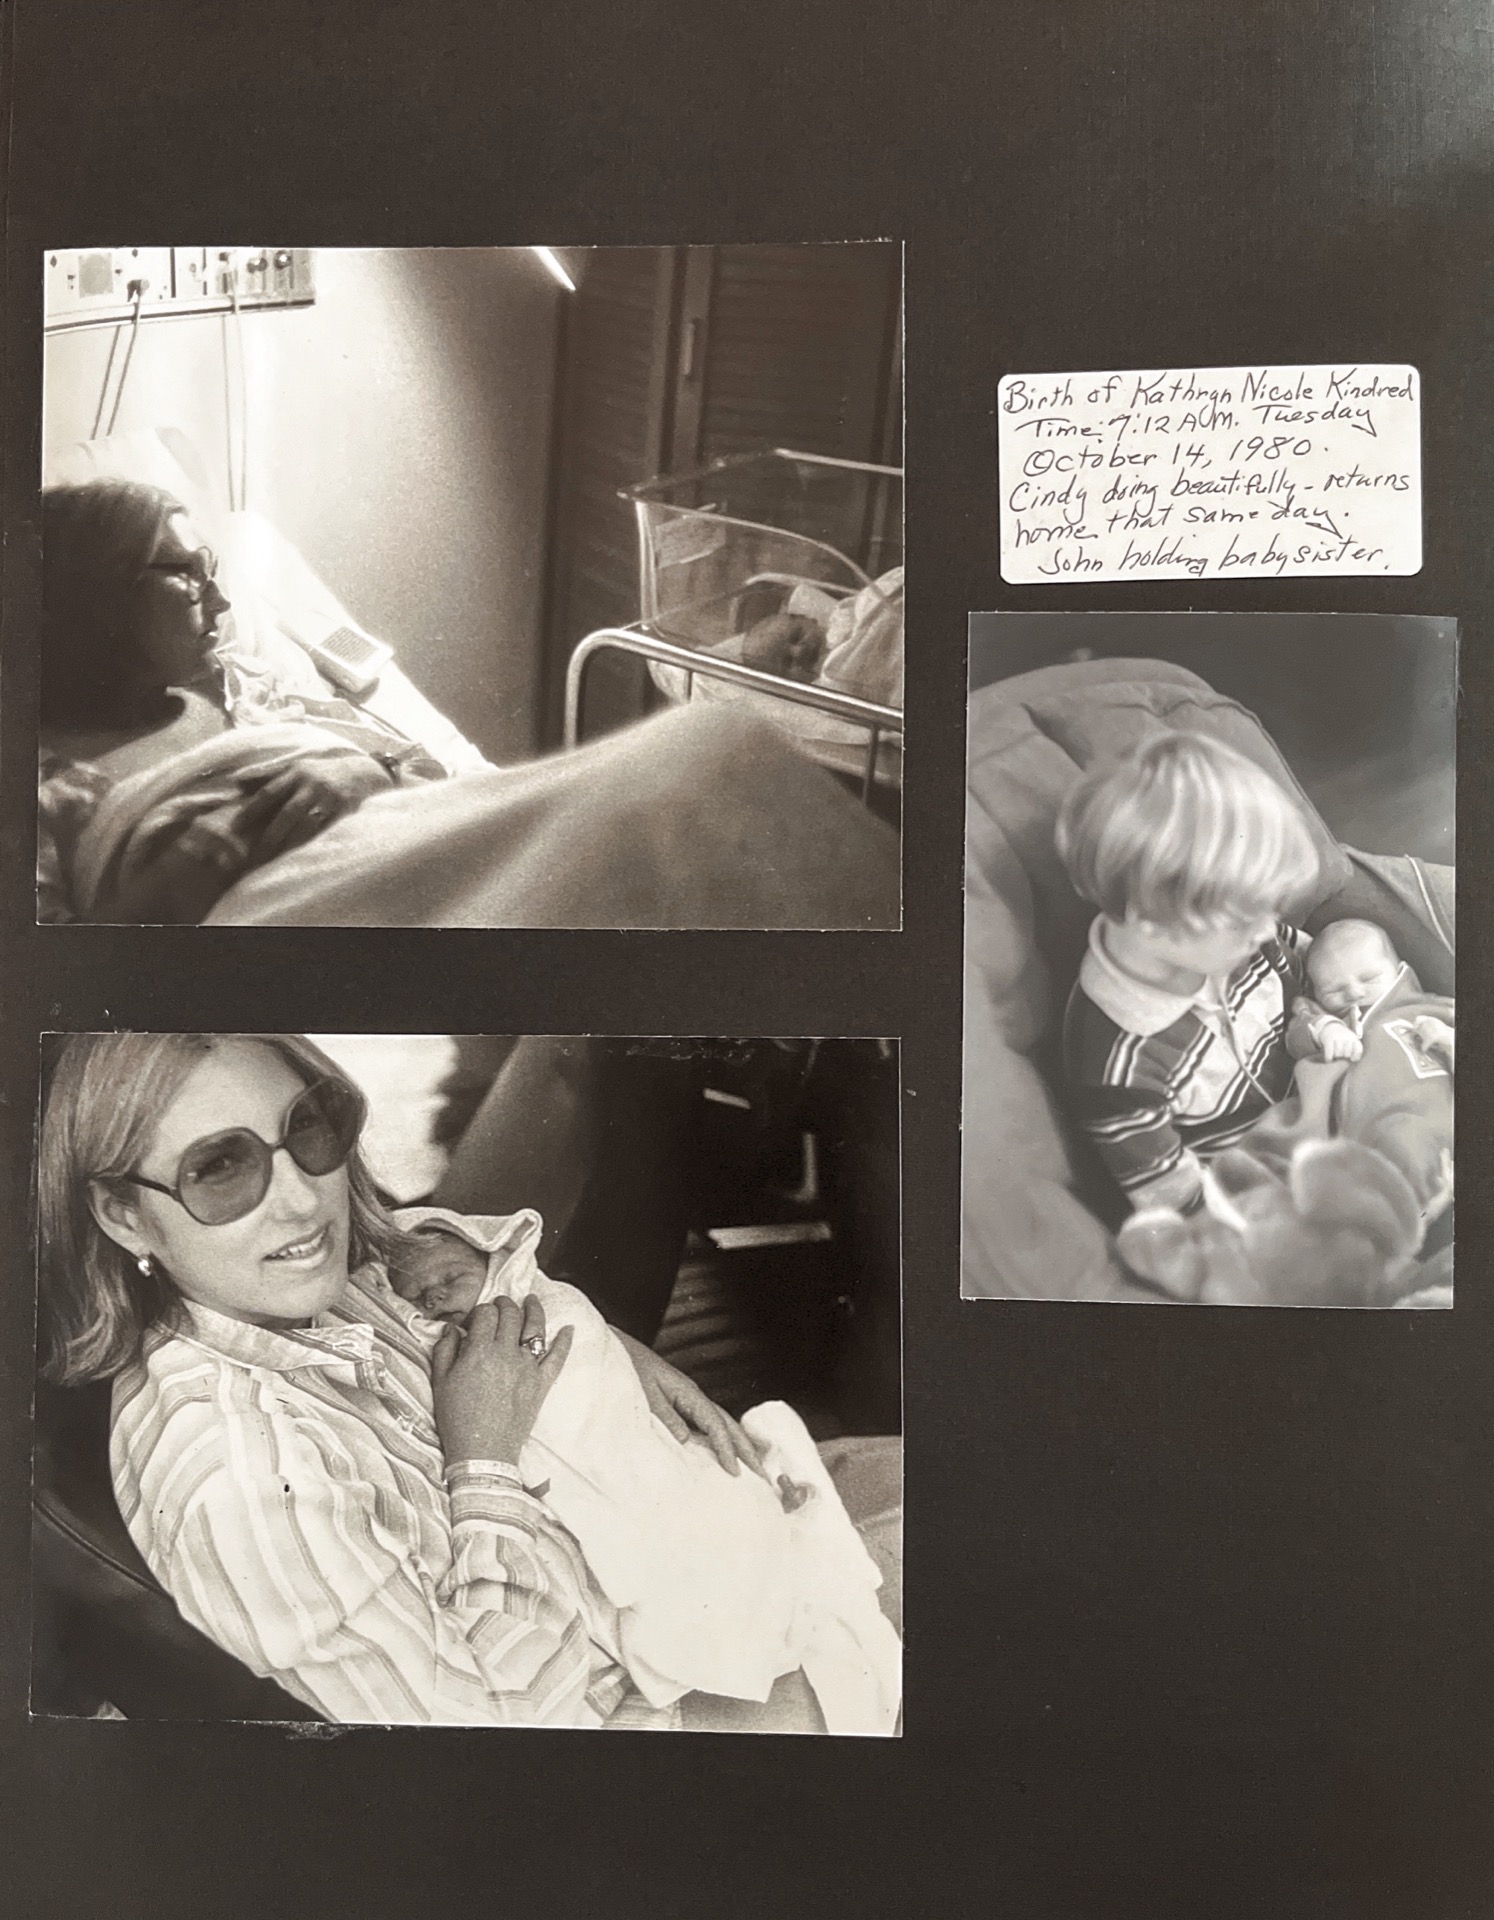 Birth of Kathryn Nicole Kindred
Time: 7:12 A.M. Tuesday
October 14, 1980.
Cindy doing beautifully - returns
home that same day.
John holding baby sister.